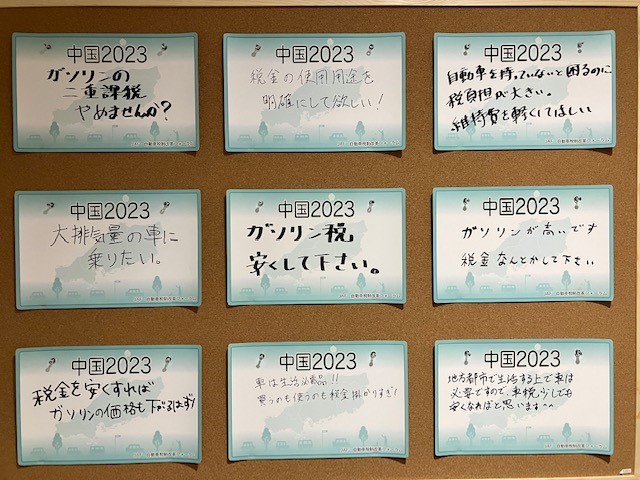 中国2023
ガソリンの
二重課税
やめませんか?
JAF 自動車税制改革フォーラム
中国2023
税金の使用用途を
明確にして欲しい!
JAF 自動車税制改革フォーラム
中国2023
自動車を持っていないと困るのに
税負担が大きい。
維持費を軽くしてほしい
JAF 自動車税制改革フォーラム
中国2023
大排気量の車に
乗りたい。
JAF 自動車税制改革フォーラム
中国2023
ガソリン税
安くして下さい。
JAF 自動車税制改革フォーラム
中国2023
ガソリンが高いです
税金なんとかして下さい
JAF 自動車税制改革フォーラム
中国2023
税金を安くすれば
ガソリンの価格も下がるはず!
JAF 自動車税制改革フォーラム
中国2023
車は生活必需品!!
買うのも使うのも税金掛かりすぎ!
JAF 自動車税制改革フォーラム
中国2023
地方都市で生活する上で車は
必要ですので、車税少しでも
安くなればと思います~~
JAF 自動車税制改革フォーラム